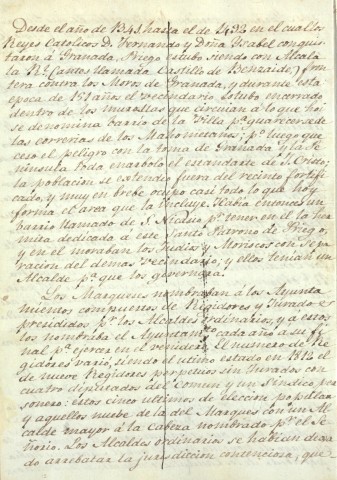 Desde el año de 1341 hasta el de 1492 en el cual los
Reyes Catolicos D. Fernando y Doña Ysabel conquis
taron á Granada, Priego estubo siendo con Alcalá
la Rl. (antes llamada Castillo de Benzaide) fron
tera contra los Moros de Granada, y durante esta
epoca de 151 años el vecindario estubo encerrado
dentro de las murallas que ceñian á lo que hoy
se denomina barrio de la Villa pª guarecerse de
las correrias de los Mahometanos; pº luego que
ceso el peligro con la toma de Granada y la Pe
ninsula toda enarbolo el estandarte de J. Cristo;
la poblacion se estendio fuera del recinto fortifi
cado, y muy en brebe ocupo casi todo lo que hoy
forma el area que la incluye. Habia entonces un
barrio llamado de S. Nicasio pr. tener en el la her
mita dedicada á este Santo Patrono de Priego,
y en el moraban los Judios y Moriscos con sepa
racion del demas vecindario, y ellos tenian un
Alcalde pª que los governara.
Los Marqueses nombraban á los Ayunta
mientos compuestos de Regidores y Jurados
presididos pr. los Alcaldes ordinarios, y á estos
los nombraba el Ayuntamto. cada año a su fi
nal pª ejercer en el venidero. El numero de Re
gidores varió, siendo el ultimo estado en 1812 el
de nueve Regidores perpetuos sin Jurados con
cuatro diputados del Comun y un Sindico per
sonero: estos cinco ultimos de eleccion popular
y aquellos nuebe de la del Marques con un Al
calde mayor á la cabeza nombrado pr. el Se
ñorio. Los Alcaldes ordinarios se habian deja
do arrebatar la jurisdiccion contenciosa, que